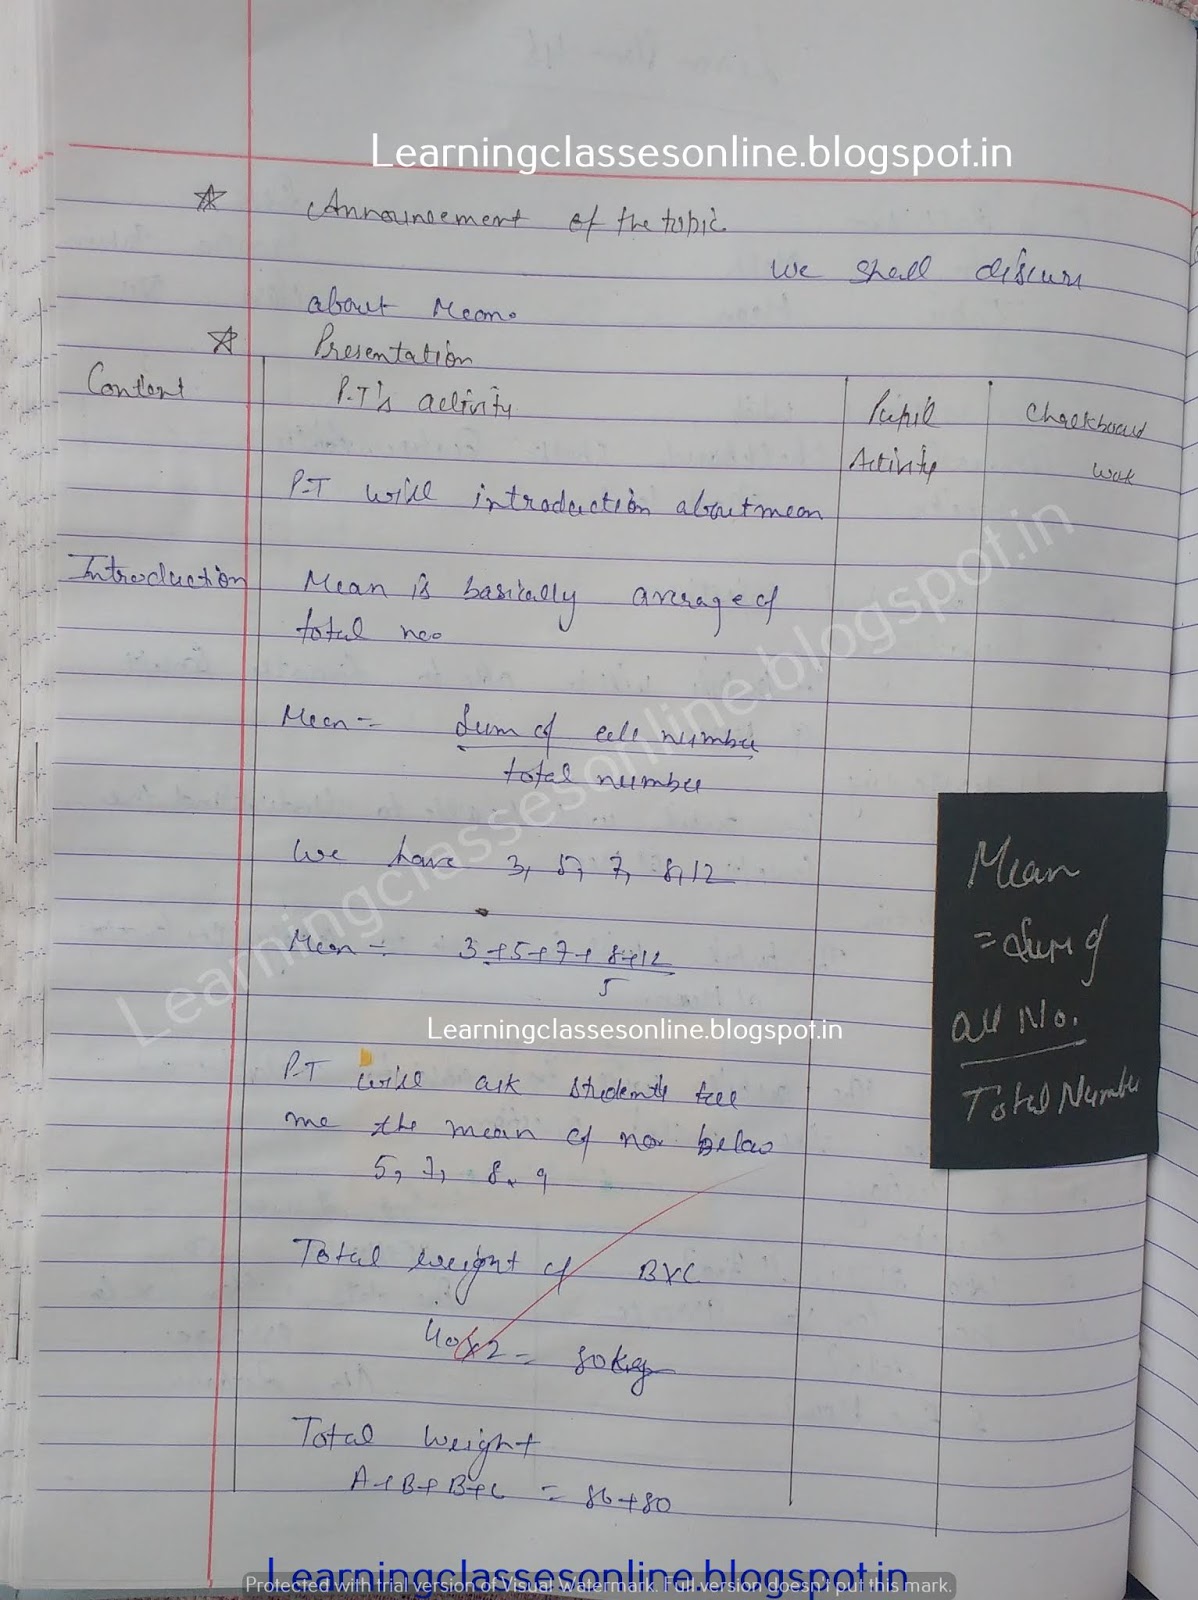 Learningclassesonline.blogspot.in
Announcement of the topic
We shall discuss
about Mean.
Presentation
Content
P.T's activity
Pupil
Activity
Chalkboard
work
P.T will introduction about mean
Introduction
Mean is basically average of
total no.
Mean = Sum of all number
total number
We have 3, 5, 7, 8, 12
Mean = 3+5+7+8+12
5
Learningclassesonline.blogspot.in
Learningclassesonline.blogspot.in
P.T will ask students tell
me the mean of no. below
5, 7, 8, 9
Mean
= Sum of
all No.
Total Number
Total weight of B&C
40x2 = 80 kg
Total weight
A+B+B+C = 86+80
Learningclassesonline.blogspot.in
Protected with trial version of Visual Watermark. Full version doesn't put this mark.